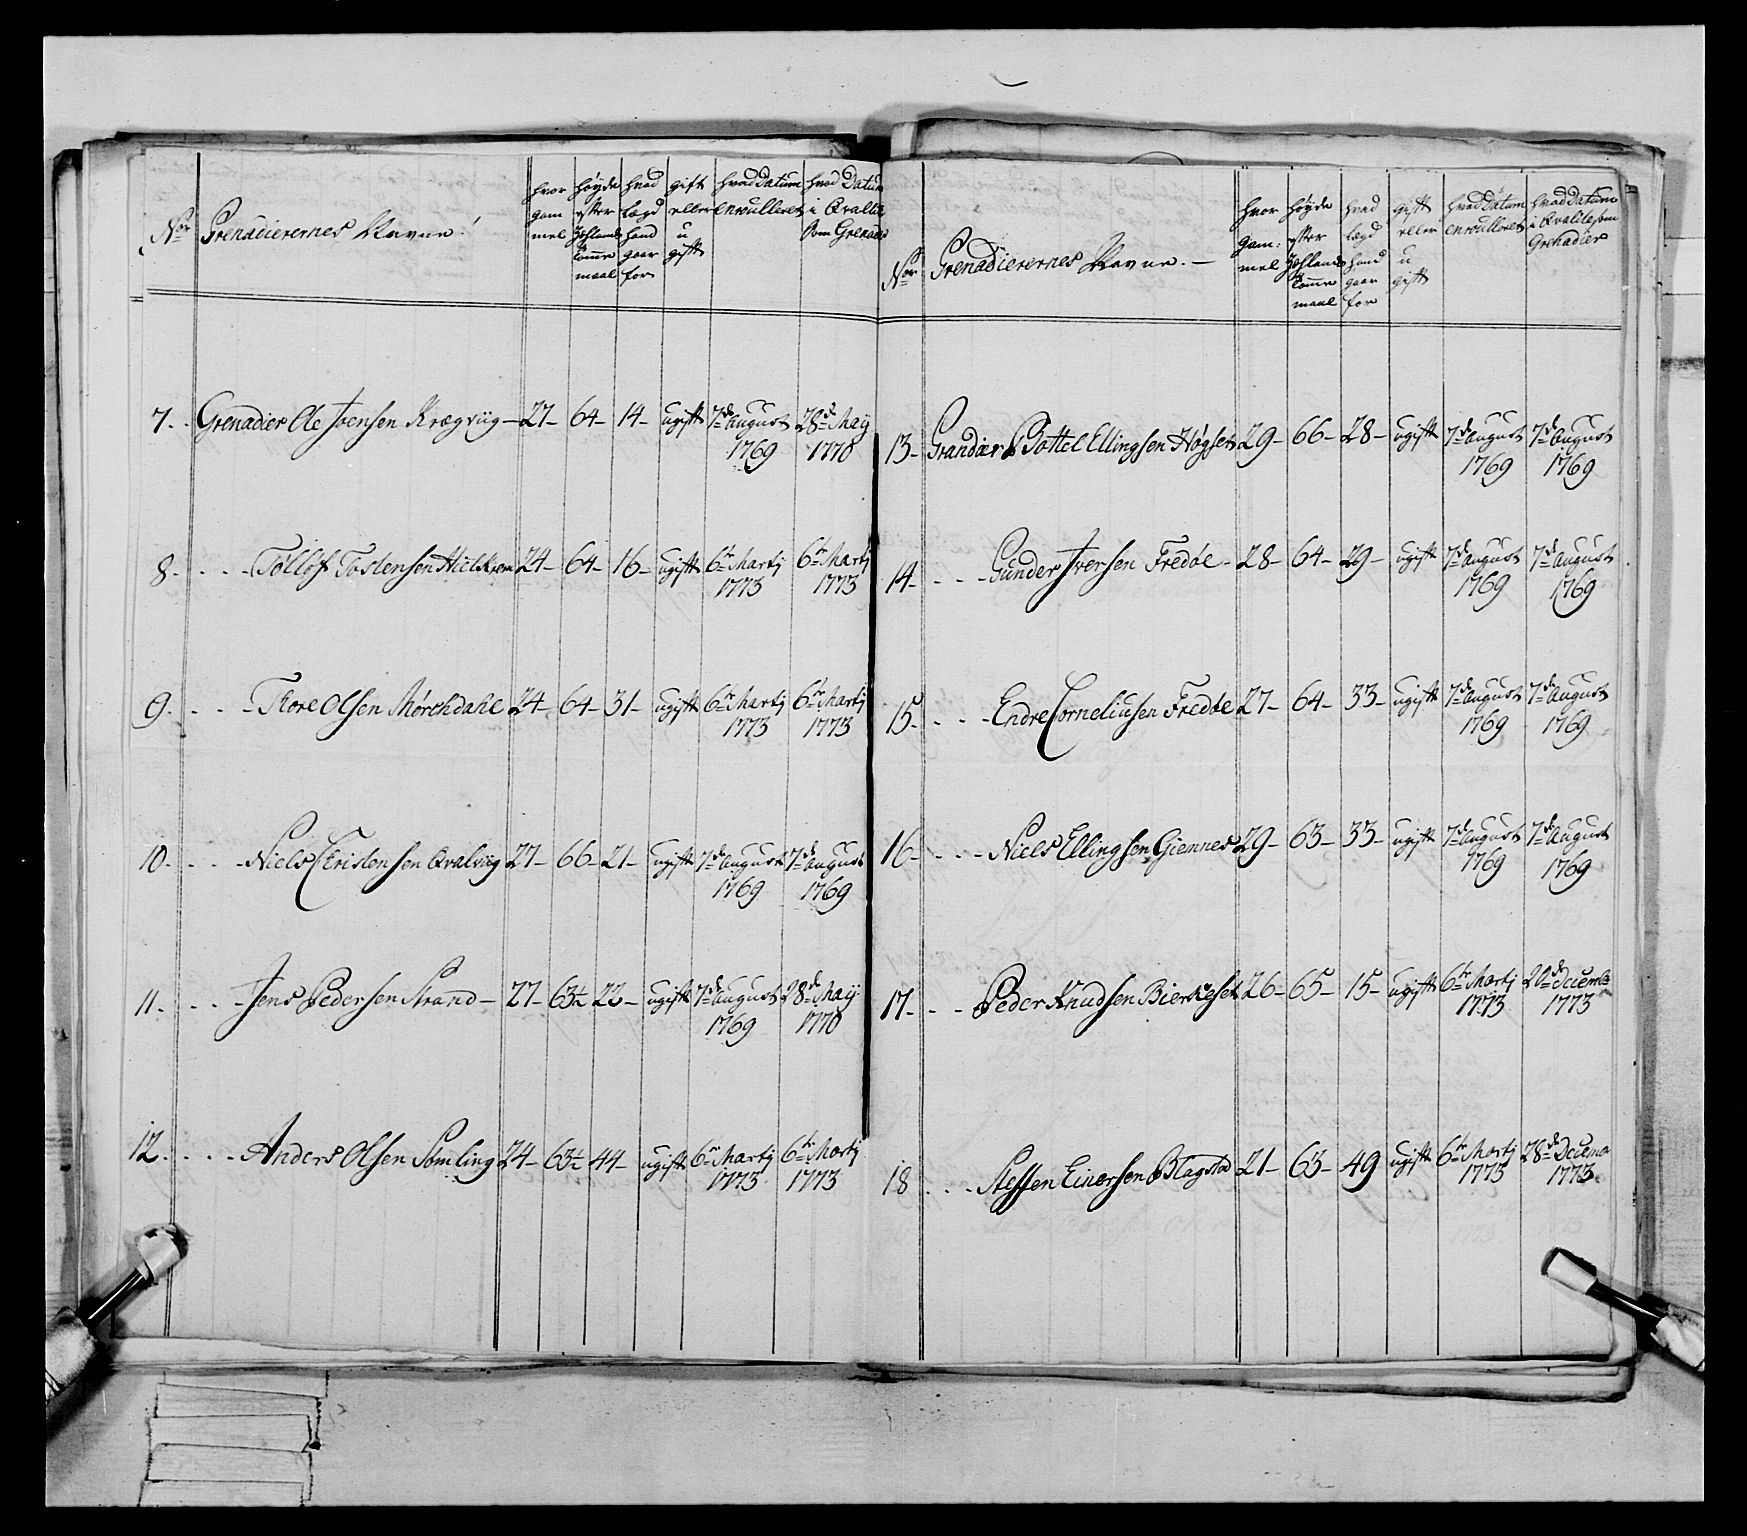 Nor Grenadierernes Navne. hvor gam mel høyde efter Zehlands Tomme maal hvad Lægd hand gaar for gift eller u gift hvad Datum enroulleret hvad Datum i Qvalite som Grenadier
7. Grenadier Ole Joensen Krægviig 27 64 14 ugift 7de August 1769 28de Maÿ 1770
8. Tølløf Tostensen 24 64 16 ugift 6te Martj 1773 6te Martj 1773
9. Tore Olsen Mørchdahl 24 64 31 ugift 6te Martj 1773 6te Martj 1773
10. Niels Christensen Qvalviig 27 66 21 ugift 7de August 1769 7de August 1769
11. Jens Pedersen Strand 27 63½ 22 ugift 7de August 1769 28de Maÿ 1770
12. Anders Olsen Somling 24 63½ 44 ugift 6te Martj 1773 6te Martj 1773
Nor Grenadierernes Navne. hvor gam: mel høyde efter Zehlands Tomme maal hvad Lægd hand gaar for gift eller u gift hvad Datum enroulleret hvad Datum i Qvalite som Grenadier
13. Grandier Bottel Ellingsen Høgset 29 66 28 ugift 7de August 1769 7de August 1769
14. Gunder Iversen Fredøe 28 64 29 ugift 7de August 1769 7de August 1769
15. Endre Corneliusen Fredøe 27 64 33 ugift 7de August 1769 7de August 1769
16. Niels Ellingsen Giemnes 29 63 33 ugift 7de August 1769 7de August 1769
17. Peder Knudsen Bierkeset 26 65 15 ugift 6te Martj 1773 20de Decemb 1773
18. Steffen Einersen Blagstad 21 63 49 ugift 6te Martj 1773 28de Decemb 1773